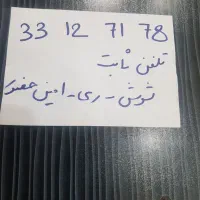 33 12 71 78
تلفن ثابت
شوش - ری - امین حضور